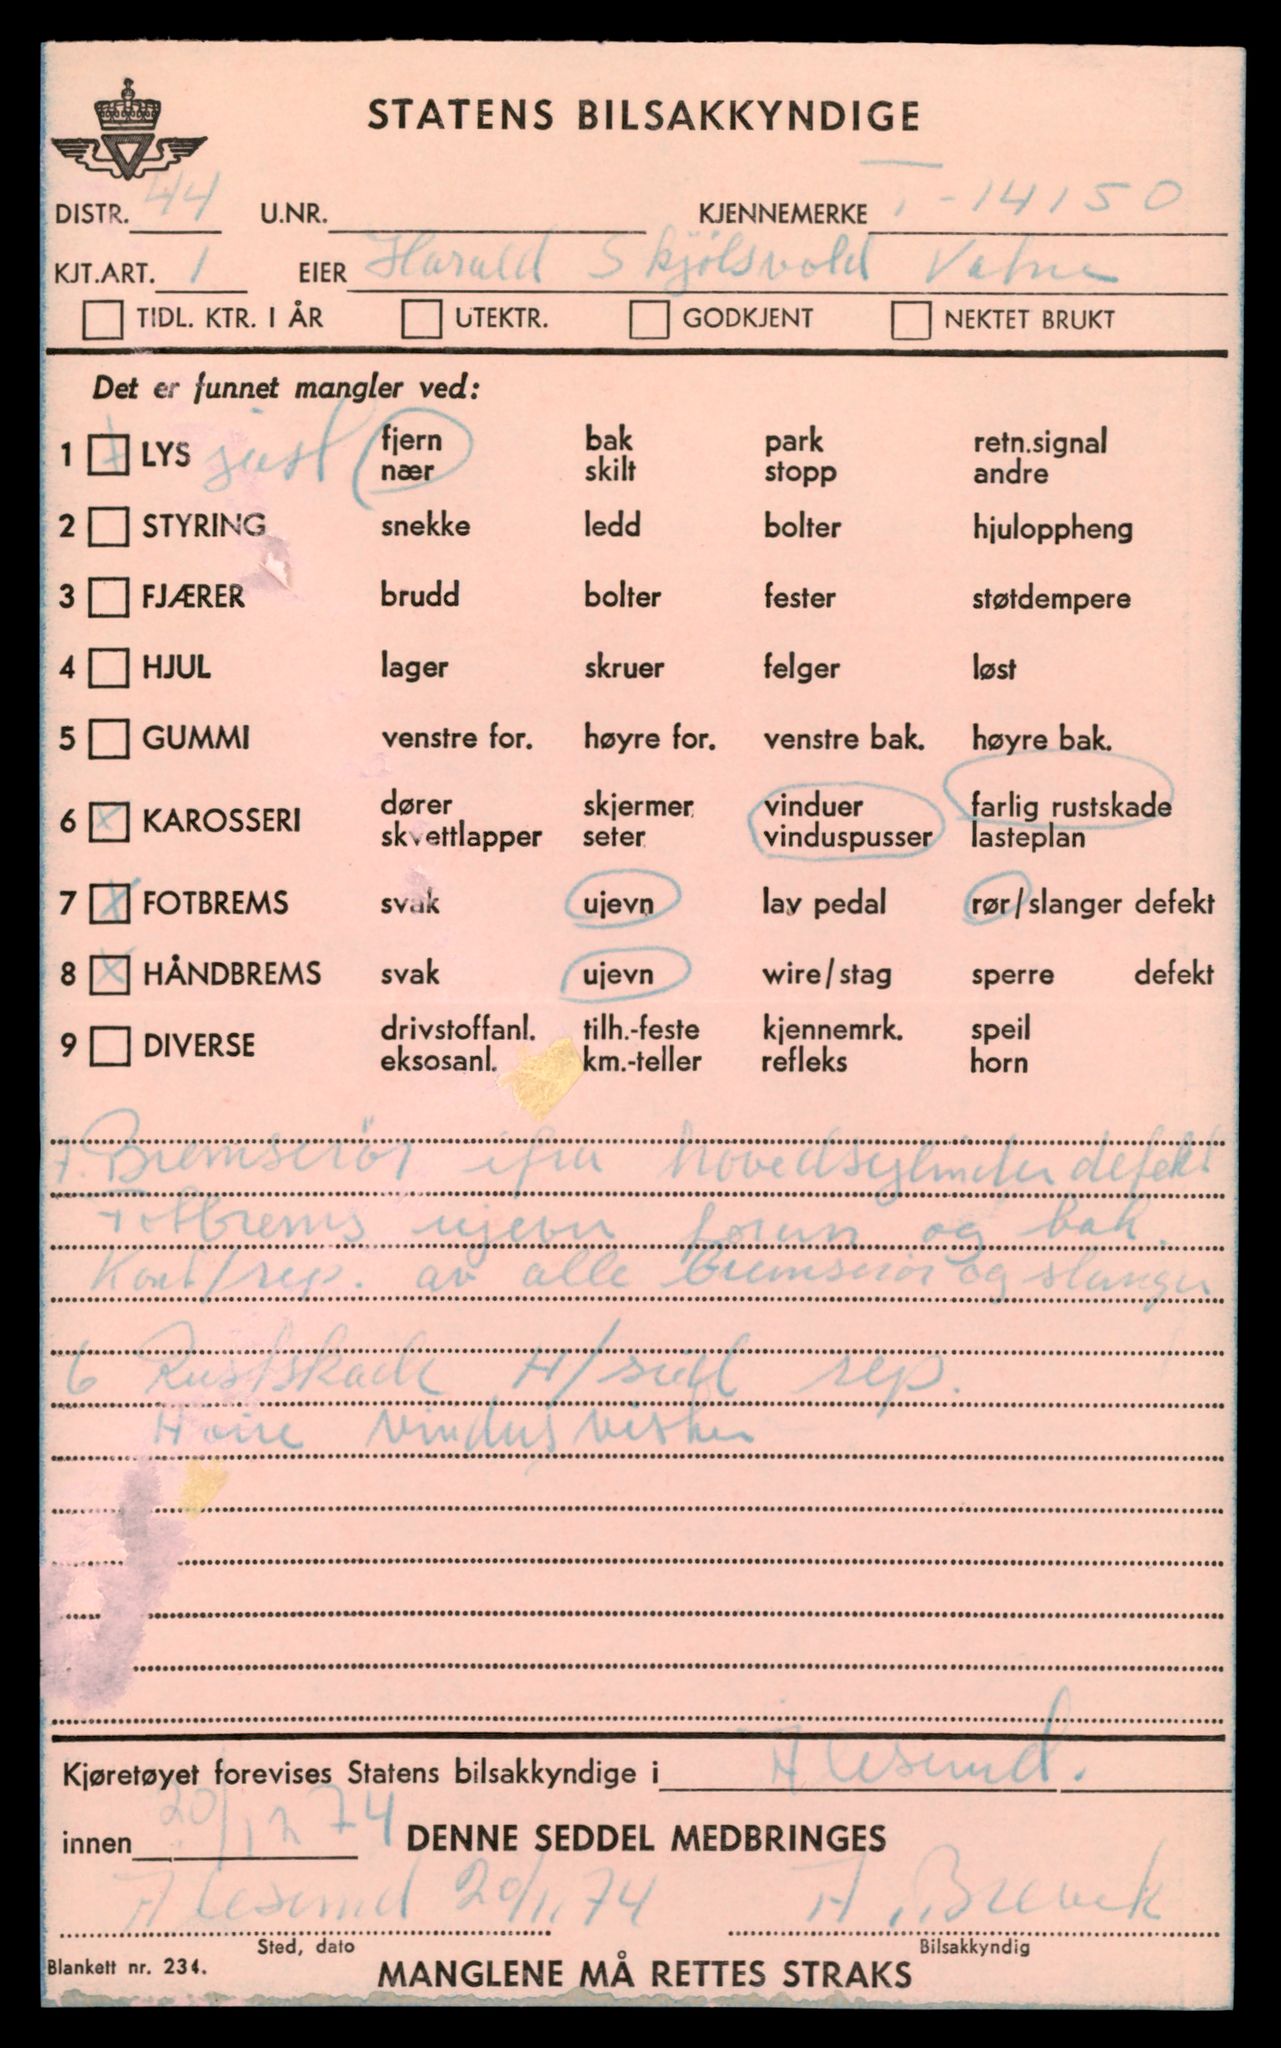 STATENS BILSAKKYNDIGE
DISTR. 44 U.NR. KJENNEMERKE T-14150
KJT.ART. 1 EIER Harald Skjölsvold Vatne
TIDL. KTR. I ÅR UTEKTR. GODKJENT NEKTET BRUKT
Det er funnet mangler ved:
1 x LYS just fjern bak park retn.signal
nær skilt stopp andre
2 STYRING snekke ledd bolter hjuloppheng
3 FJÆRER brudd bolter fester støtdempere
4 HJUL lager skruer felger løst
5 GUMMI venstre for. høyre for. venstre bak. høyre bak.
6 x KAROSSERI dører skjermer vinduer farlig rustskade
skvettlapper seter vinduspusser lasteplan
7 x FOTBREMS svak ujevn lav pedal rør/slanger defekt
8 x HÅNDBREMS svak ujevn wire/stag sperre defekt
9 DIVERSE drivstoffanl. tilh.-feste kjennemrk. speil
eksosanl. km.-teller refleks horn
7. Bremserör ifra hovedsylinder defekt
Fotbrems ujevn foran og bak.
Kont/rep. av alle bremserör og slanger
6 Rustskade H/side rep.
Höire vindusvisker
Kjøretøyet forevises Statens bilsakkyndige i Alesund.
innen 20/12 74 DENNE SEDDEL MEDBRINGES
Alesund 20/11 74 A. Brevik
Sted, dato Bilsakkyndig
Blankett nr. 234. MANGLENE MÅ RETTES STRAKS